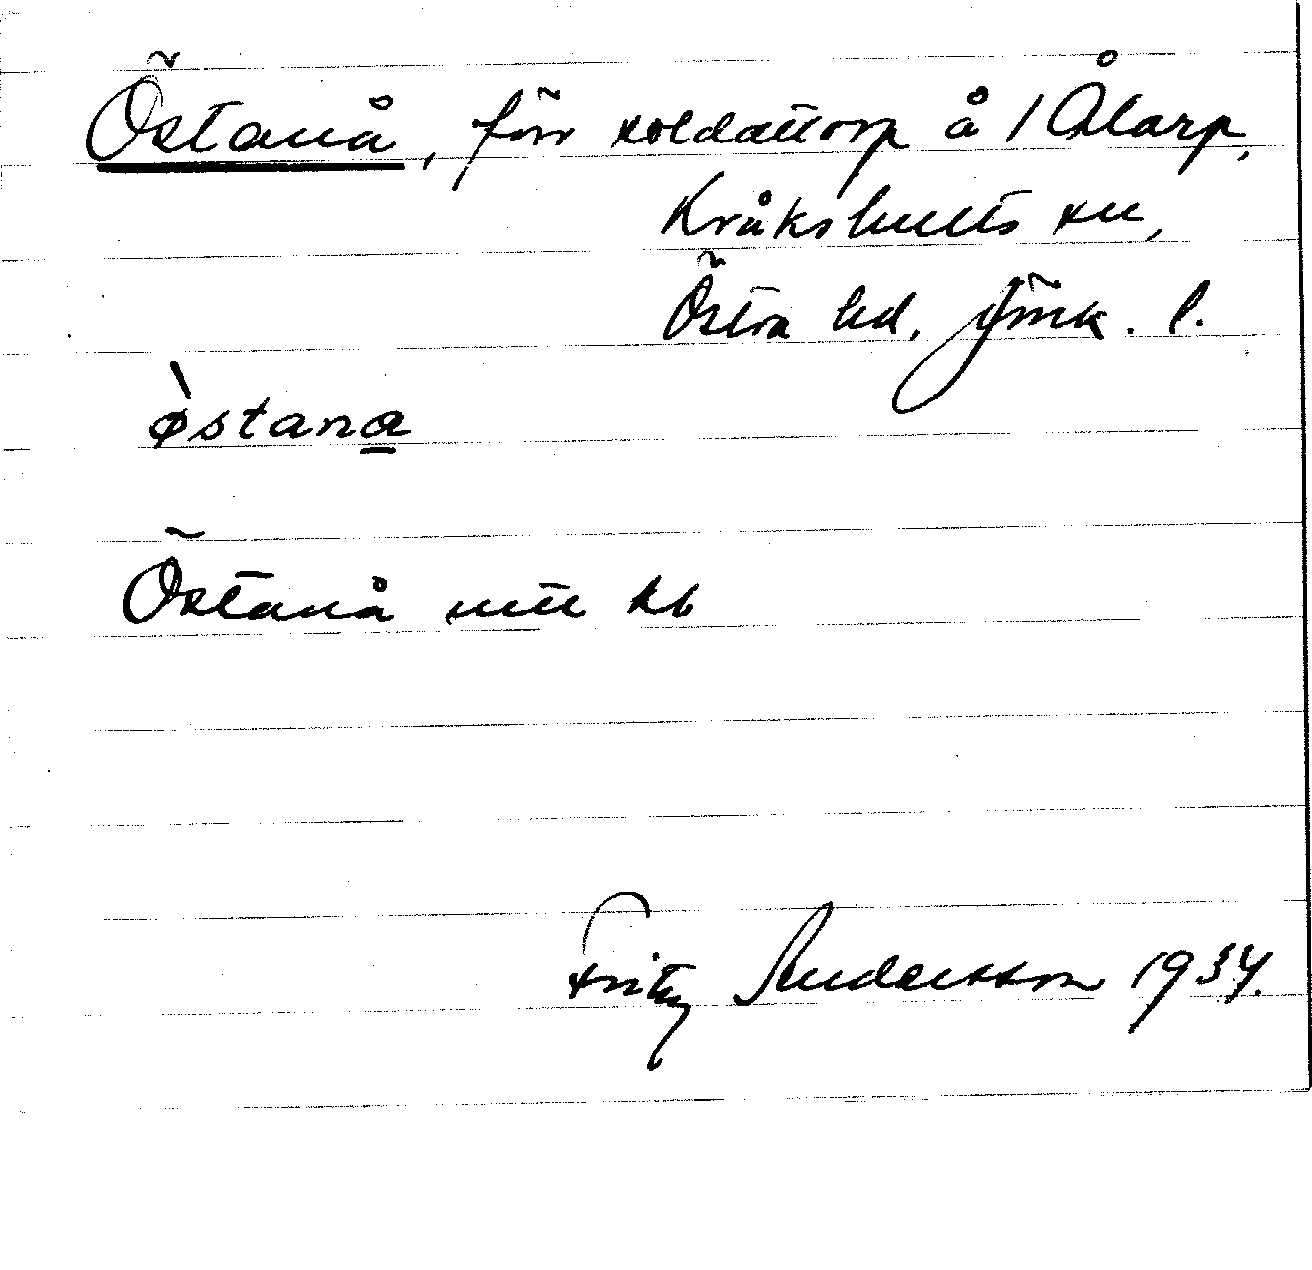 Östanå, förr soldattorp å 1 Ålarp,
Kråkshults sn,
Östra hd, Jönk. l.
østana
Östanå
Fritz Andersson 1934.